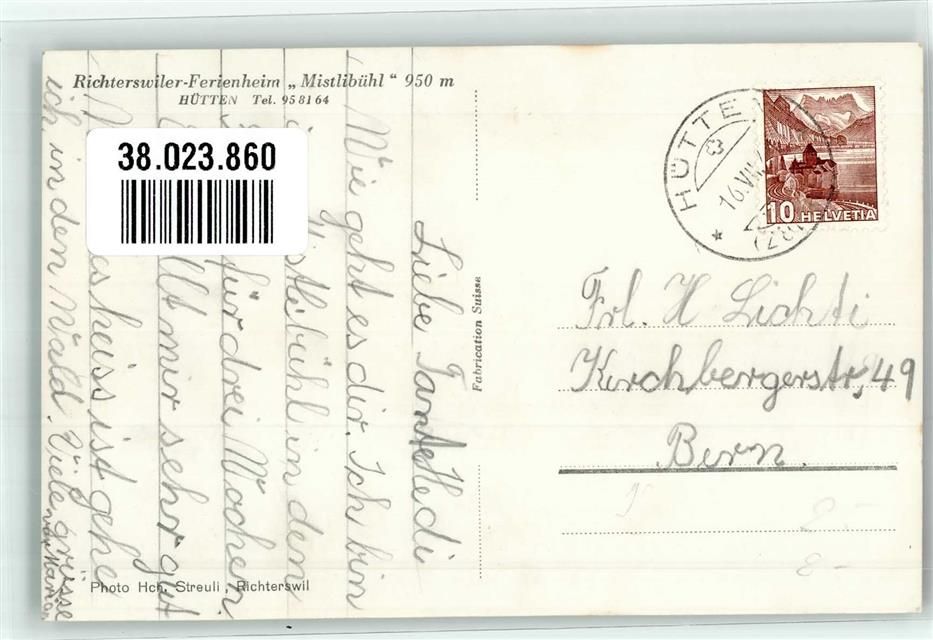 Richterswiler-Ferienheim „Mistlibühl“ 950 m
HÜTTEN Tel. 95 81 64
38.023.860
Liebe Tante Hedi
Wie geht es dir. Ich bin
Mistlibühl in den
für drei Wochen.
mir sehr gut
heiss ist gehe
ich in den Wald. Viele grüsse
von
Photo Hch. Streuli, Richterswil
Fabrication Suisse
HÜTTEN
16.VIII
10 HELVETIA
Frl. H Lichti
Kirchbergerstr, 49
Bern.